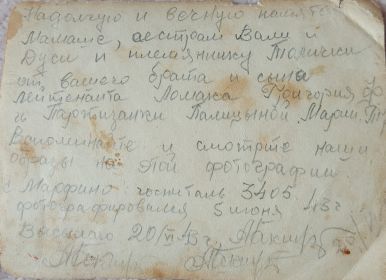 На долгую и вечную память
Мамаше, сестрам Вали и
Дуси и племяннику Толички
от вашего брата и сына
лейтенанта Ломака Григория Ф
Партизанки Палицыной Марии
Вспоминайте и смотрите наши
образы на этой фотографии.
с Марфино госпиталь 3405
фотографировался 5 июня 43 г
Высылаю 20/VI 43 г